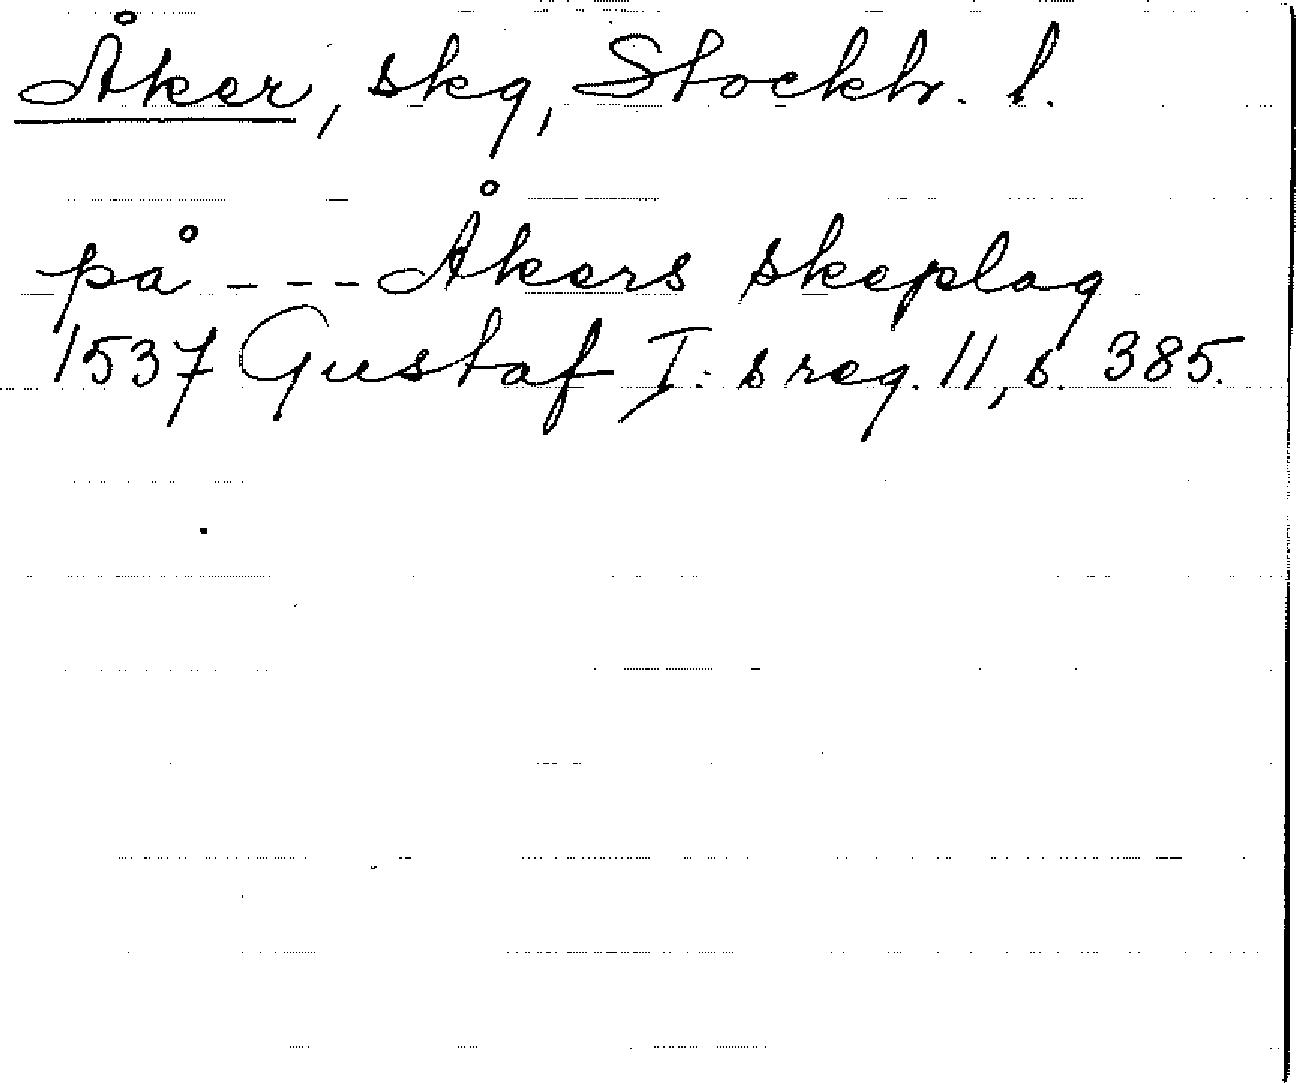 Åker, skg, Stockh. l.
på --- Åkers skeplag
1537 Gustaf I:s reg. 11, s. 385.